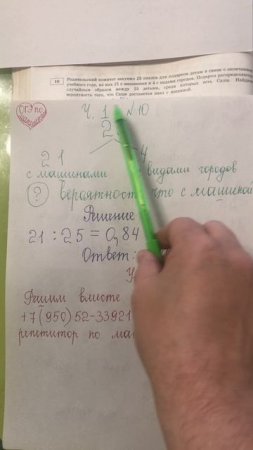 10 Родительский комитет закупил 25 пазлов для подарков детям в связи с окончанием
учебного года, из них 21 с машинами и 4 с видами городов. Подарки распределяются
случайным образом между 25 детьми, среди которых есть Саша. Найдите
вероятность того, что Саше достанется пазл с машиной.
ОГЭ
Ч. 1 №10
2
21 4
с машинами видами городов
? Вероятность что с машиной
Решение
21 : 25 = 0,84
Ответ:
Решим вместе
+7(950)52-33921
репетитор по ма